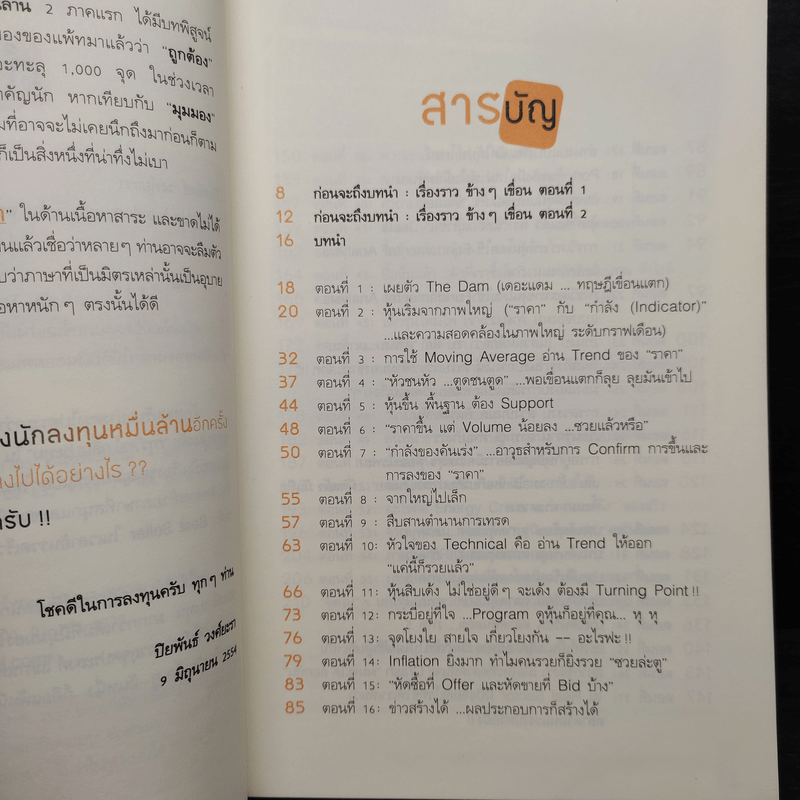 ล้าน 2 ภาคแรก ได้มีบทพิสูจน์
ของแพ้ทมาแล้วว่า "ถูกต้อง"
จะทะลุ 1,000 จุด ในช่วงเวลา
คัญนัก หากเทียบกับ "มุมมอง"
ที่อาจจะไม่เคยนึกถึงมาก่อนก็ตาม
ก็เป็นสิ่งหนึ่งที่น่าทึ่งไม่เบา
ในด้านเนื้อหาสาระ และขาดไม่ได้
นแล้วเชื่อว่าหลายๆ ท่านอาจจะลืมตัว
บว่าภาษาที่เป็นมิตรเหล่านั้นเป็นอุบาย
อหาหนักๆ ตรงนั้นได้ดี
งนักลงทุนหมื่นล้านอีกครั้ง
งไปได้อย่างไร ??
ครับ !!
โชคดีในการลงทุนครับ ทุกๆ ท่าน
ปิยพันธ์ วงศ์ยะรา
9 มิถุนายน 2554
สารบัญ
8 ก่อนจะถึงบทนำ : เรื่องราว ข้างๆ เขื่อน ตอนที่ 1
12 ก่อนจะถึงบทนำ : เรื่องราว ข้างๆ เขื่อน ตอนที่ 2
16 บทนำ
18 ตอนที่ 1 : เผยตัว The Dam (เดอะแดม ... ทฤษฎีเขื่อนแตก)
20 ตอนที่ 2 : หุ้นเริ่มจากภาพใหญ่ ("ราคา" กับ "กำลัง (Indicator)"
...และความสอดคล้องในภาพใหญ่ ระดับกราฟเดือน)
32 ตอนที่ 3 : การใช้ Moving Average อ่าน Trend ของ "ราคา"
37 ตอนที่ 4 : "หัวชนหัว ...ตูดชนตูด" ...พอเขื่อนแตกก็ลุย ลุยมันเข้าไป
44 ตอนที่ 5 : หุ้นขึ้น พื้นฐาน ต้อง Support
48 ตอนที่ 6 : "ราคาขึ้น แต่ Volume น้อยลง ...ซวยแล้วหรือ"
50 ตอนที่ 7 : "กำลังของคันเร่ง" ...อาวุธสำหรับการ Confirm การขึ้นและ
การลงของ "ราคา"
55 ตอนที่ 8 : จากใหญ่ไปเล็ก
57 ตอนที่ 9 : สืบสานตำนานการเทรด
63 ตอนที่ 10: หัวใจของ Technical คือ อ่าน Trend ให้ออก
"แค่นี้ก็รวยแล้ว"
66 ตอนที่ 11: หุ้นสิบเด้ง ไม่ใช่อยู่ดีๆ จะเด้ง ต้องมี Turning Point!!
73 ตอนที่ 12: กระบี่อยู่ที่ใจ ...Program ดูหุ้นก็อยู่ที่คุณ... หุ หุ
76 ตอนที่ 13: จุดโยงใย สายใจ เกี่ยวโยงกัน -- อะไรฟะ!!
79 ตอนที่ 14: Inflation ยิ่งมาก ทำไมคนรวยก็ยิ่งรวย "ซวยล่ะตู"
83 ตอนที่ 15: "หัดซื้อที่ Offer และหัดขายที่ Bid บ้าง"
85 ตอนที่ 16: ข่าวสร้างได้ ...ผลประกอบการก็สร้างได้